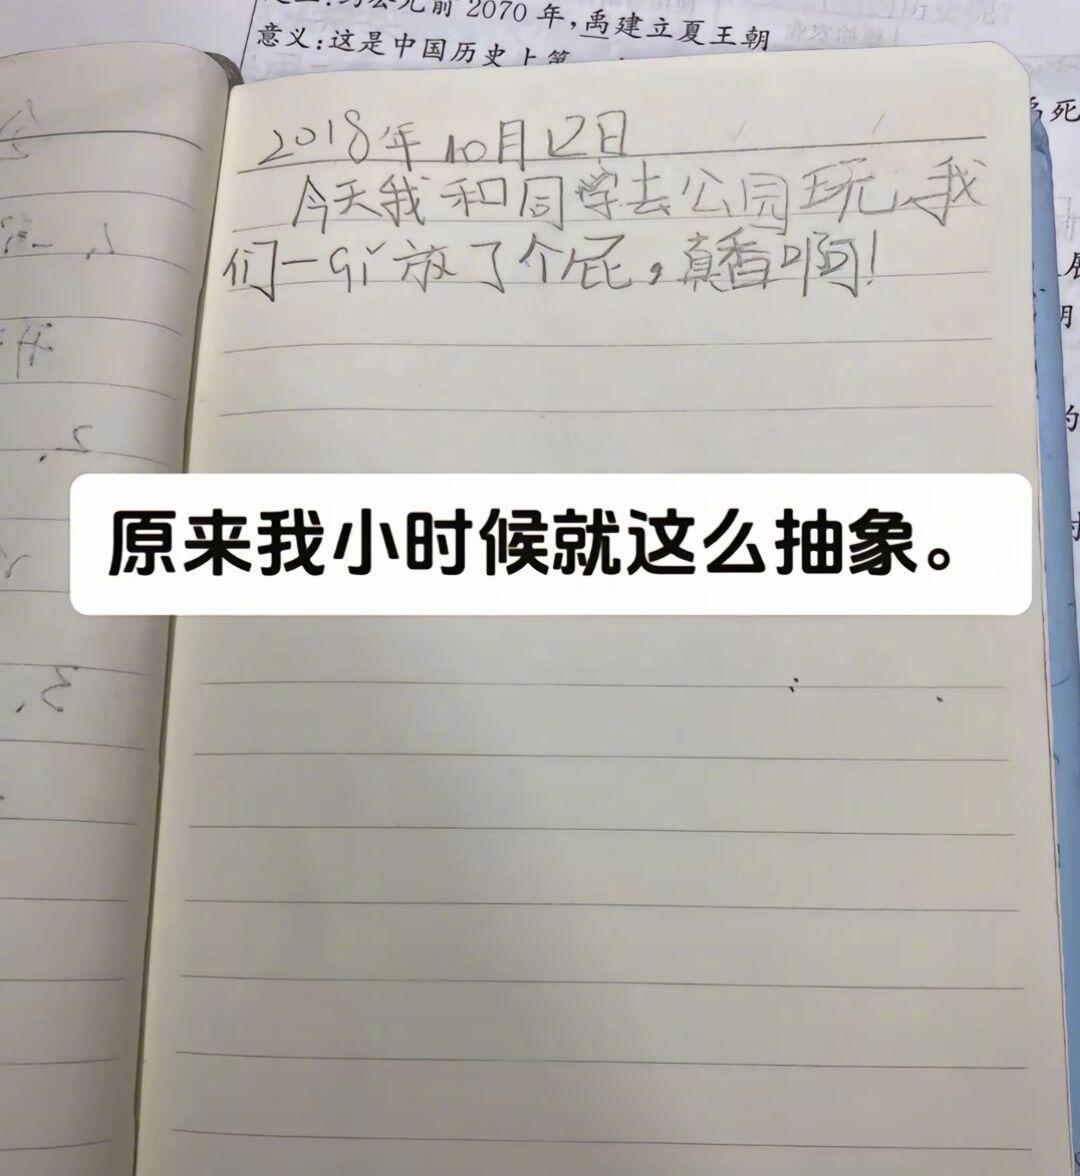 2070年,禹建立夏王朝
意义:这是中国历史上第
2018年10月12日
今天我和同学去公园玩,我
们一qǐ放了个屁,真香啊!
原来我小时候就这么抽象。